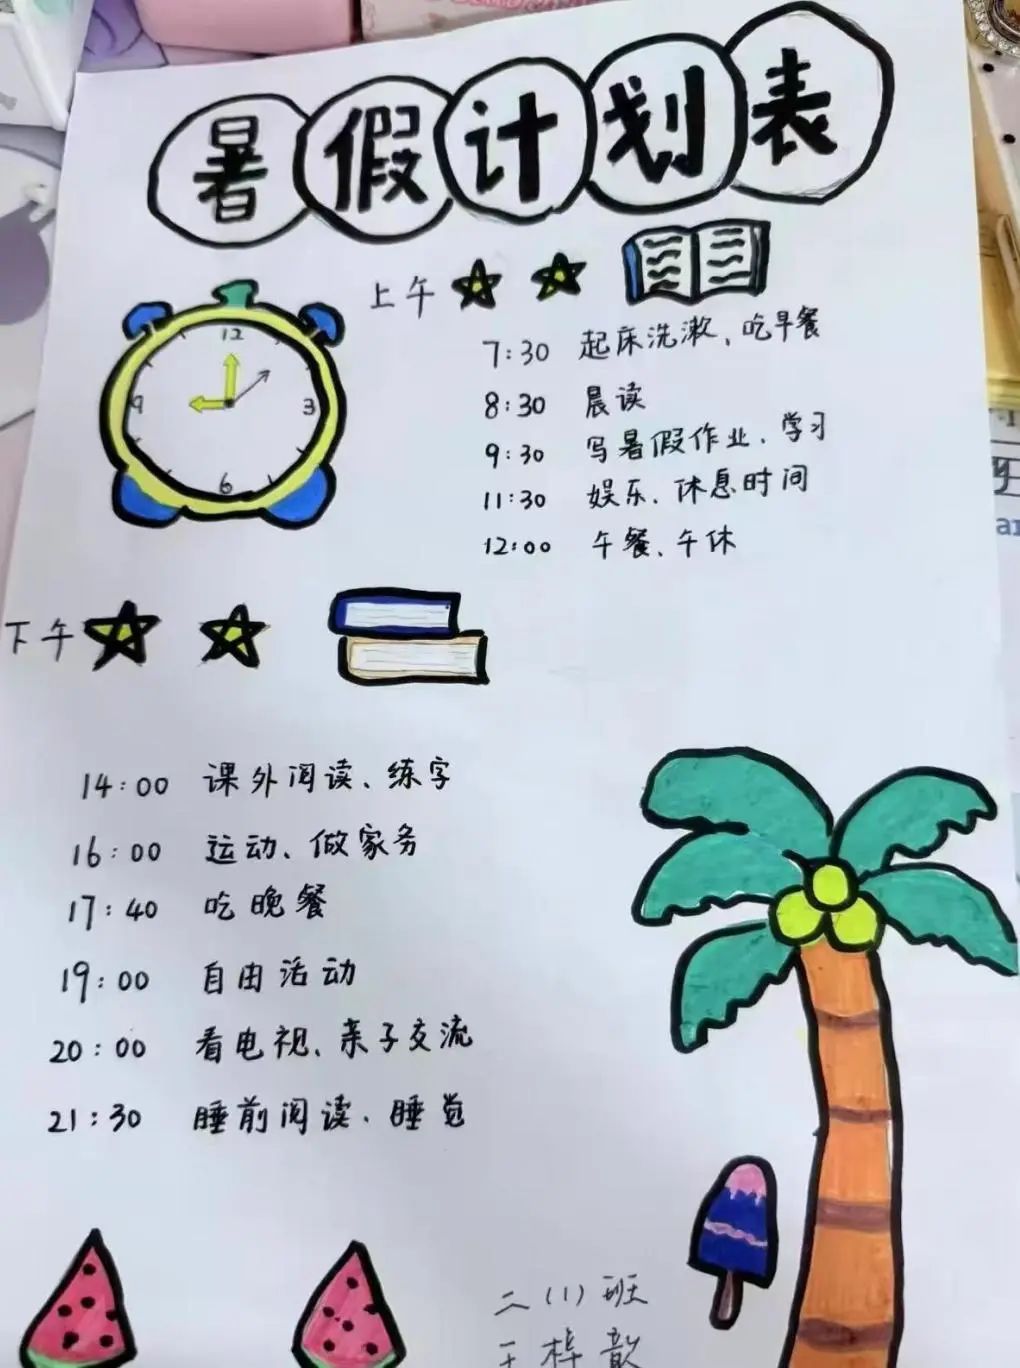 暑假计划表
上午
12
9
3
6
7:30 起床洗漱、吃早餐
8:30 晨读
9:30 写暑假作业、学习
11:30 娱乐、休息时间
12:00 午餐、午休
下午
14:00 课外阅读、练字
16:00 运动、做家务
17:40 吃晚餐
19:00 自由活动
20:00 看电视、亲子交流
21:30 睡前阅读、睡觉
二(1)班
王梓歆